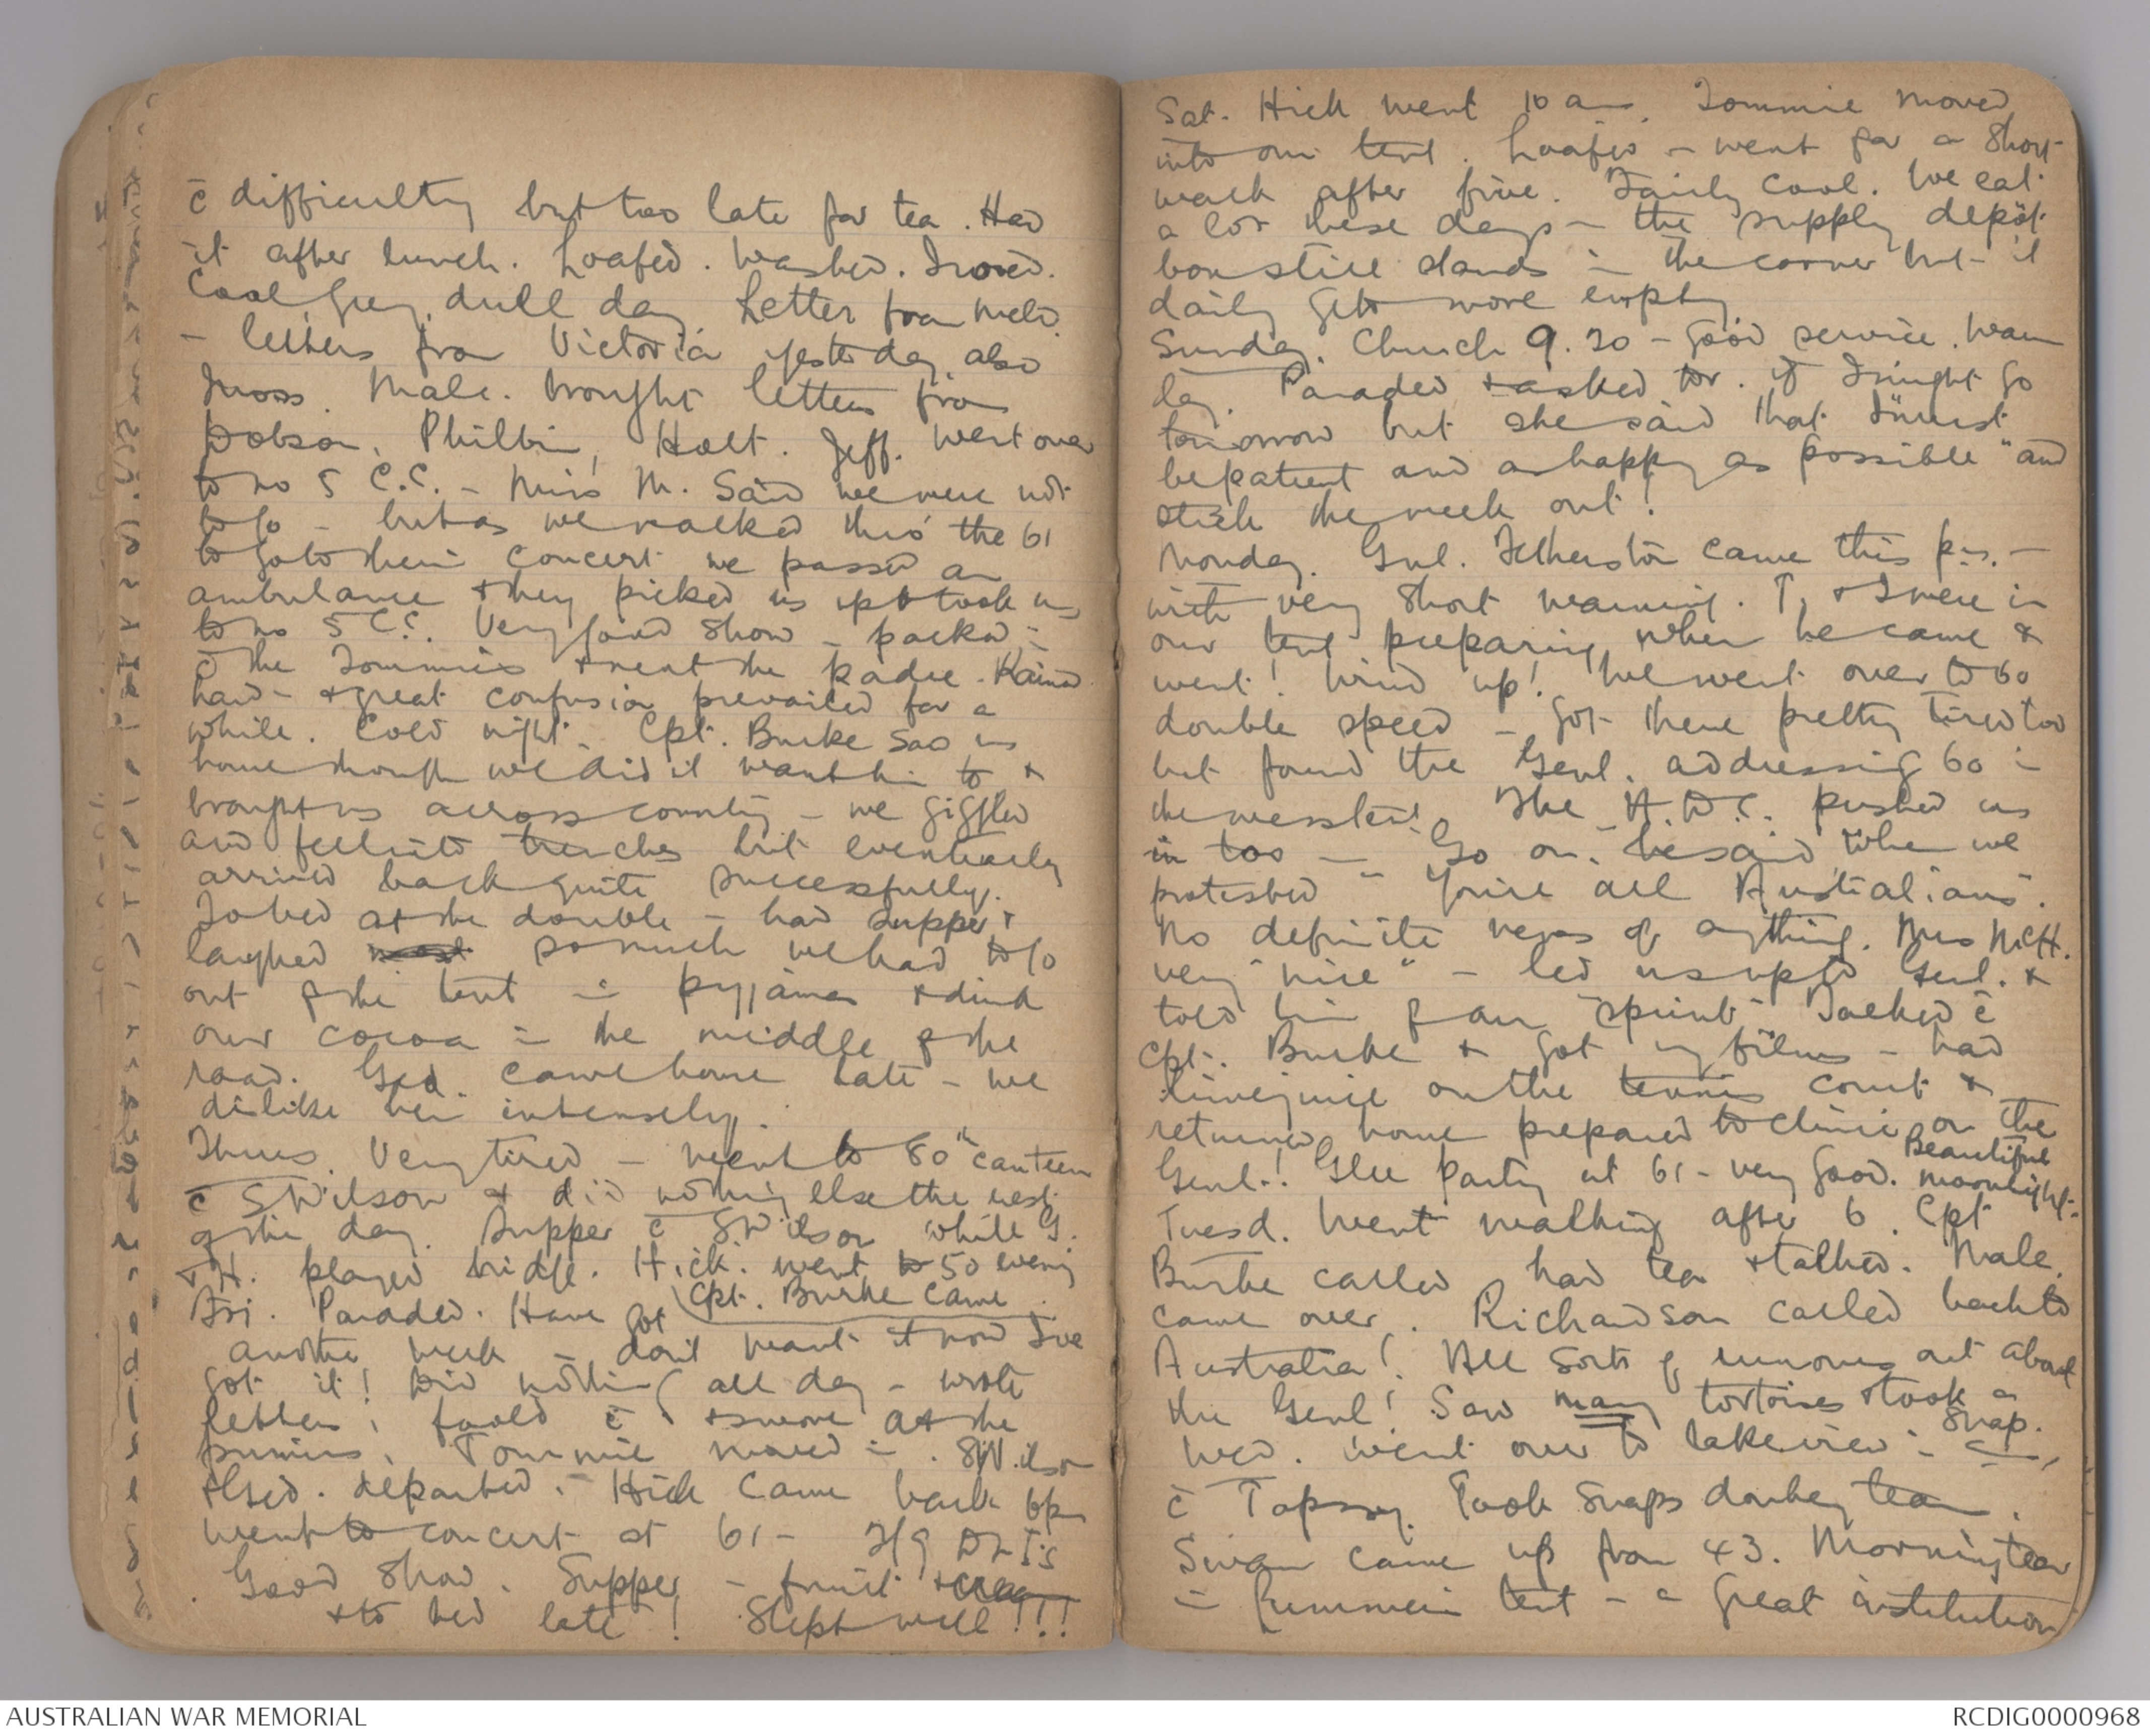 c̄ difficulty but too late for tea. Had
it after lunch. Loafed. Washed. Ironed.
Cool grey, dull day. Letter from
- letters from Victoria yesterday also
Male. brought letters from
Dobson, Philbin, Holt. Jeff. Went over
to no 5 C.C. - Miss M. said we were not
to go - but as we walked thro' the 61
to go to their concert we passed an
ambulance & they picked us up & took us
to no 5 C.C. Very good show - packed in
c̄ the Tommies & went the padre. Rained
hard - & great confusion prevailed for a
while. Cold night. Cpt. Burke saw us
home though we didn't want him to &
brought us across country - we giggled
and fell into trenches but eventually
arrived back quite successfully.
To bed at the double - had supper &
laughed so much we had to go
out of the tent in pyjamas & drink
our cocoa in the middle of the
road. Ged. came home late - we
dislike her intensely.
Thurs. Very tired - went to 80th canteen
c̄ SWilson & did nothing else the rest
of the day. Supper c̄ SWilson while G.
& H. played bridge. Hick. went to 50 evening
Cpt. Burke came.
Fri. Paraded. Have got
another week - don't want it now I've
got it! Did nothing all day - wrote
letters, c̄ & swore at the
primus. Tommie moved in. SWilson
& Ged. departed. Hick came back 6pm
Went to concert at 61 -
Good show. Supper - fruit &
& to bed late! Slept well!!!
Sat. Hick went 10 am. Tommie moved
into our tent. Loafed - went for a short
walk after five. Fairly cool. We eat
a lot these days - the supply depôt
box still stands in the corner but it
daily gets more empty.
Sunday. Church 9.30 - good service. Warm
day. Paraded & asked for. if I might go
tomorrow but she said that I "must
be patient and as happy as possible" and
stick the week out!
Monday. Gnl. Fetherston came this p.m. -
with very short warning. T. & I were in
our tent preparing when he came &
went! Wind up! We went over to 60
double speed - got there pretty tired too
but found the Genl. addressing 60 in
the mess tent. The A.D.C. pushed us
in too - "Go on", he said when we
protested "You're all Australians".
No definite news of anything. Miss McH.
very "nice" - led us up to Genl. &
told him of our "sprint" Talked c̄
Cpt. Burke & got my films - had
lime juice on the tennis court &
returned home prepared to on the
Genl.! Glee Party at 61 - very good. Beautiful
moonlight.
Tuesd. Went walking after 6. Cpt
Burke called had tea & talked. Male.
came over. Richardson called back to
Australia! All sorts of rumours out about
the Genl! Saw many tortoises & took a
snap.
Wed. Went over to lakeview in am,
c̄ Topsy. Took snaps donkey team.
Swan came up from 43. Morning tea
in tent - a great institution
AUSTRALIAN WAR MEMORIAL
RCDIG0000968